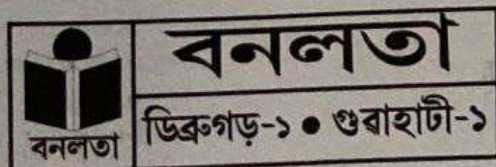 বনলতা
বনলতা
ডিব্ৰুগড়-১ ● গুৱাহাটী-১